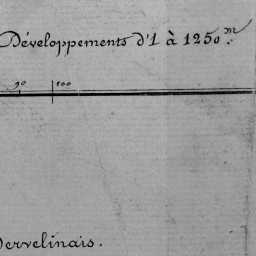 Développements d'1 à 1250 m.
90 100
Dervelinais.